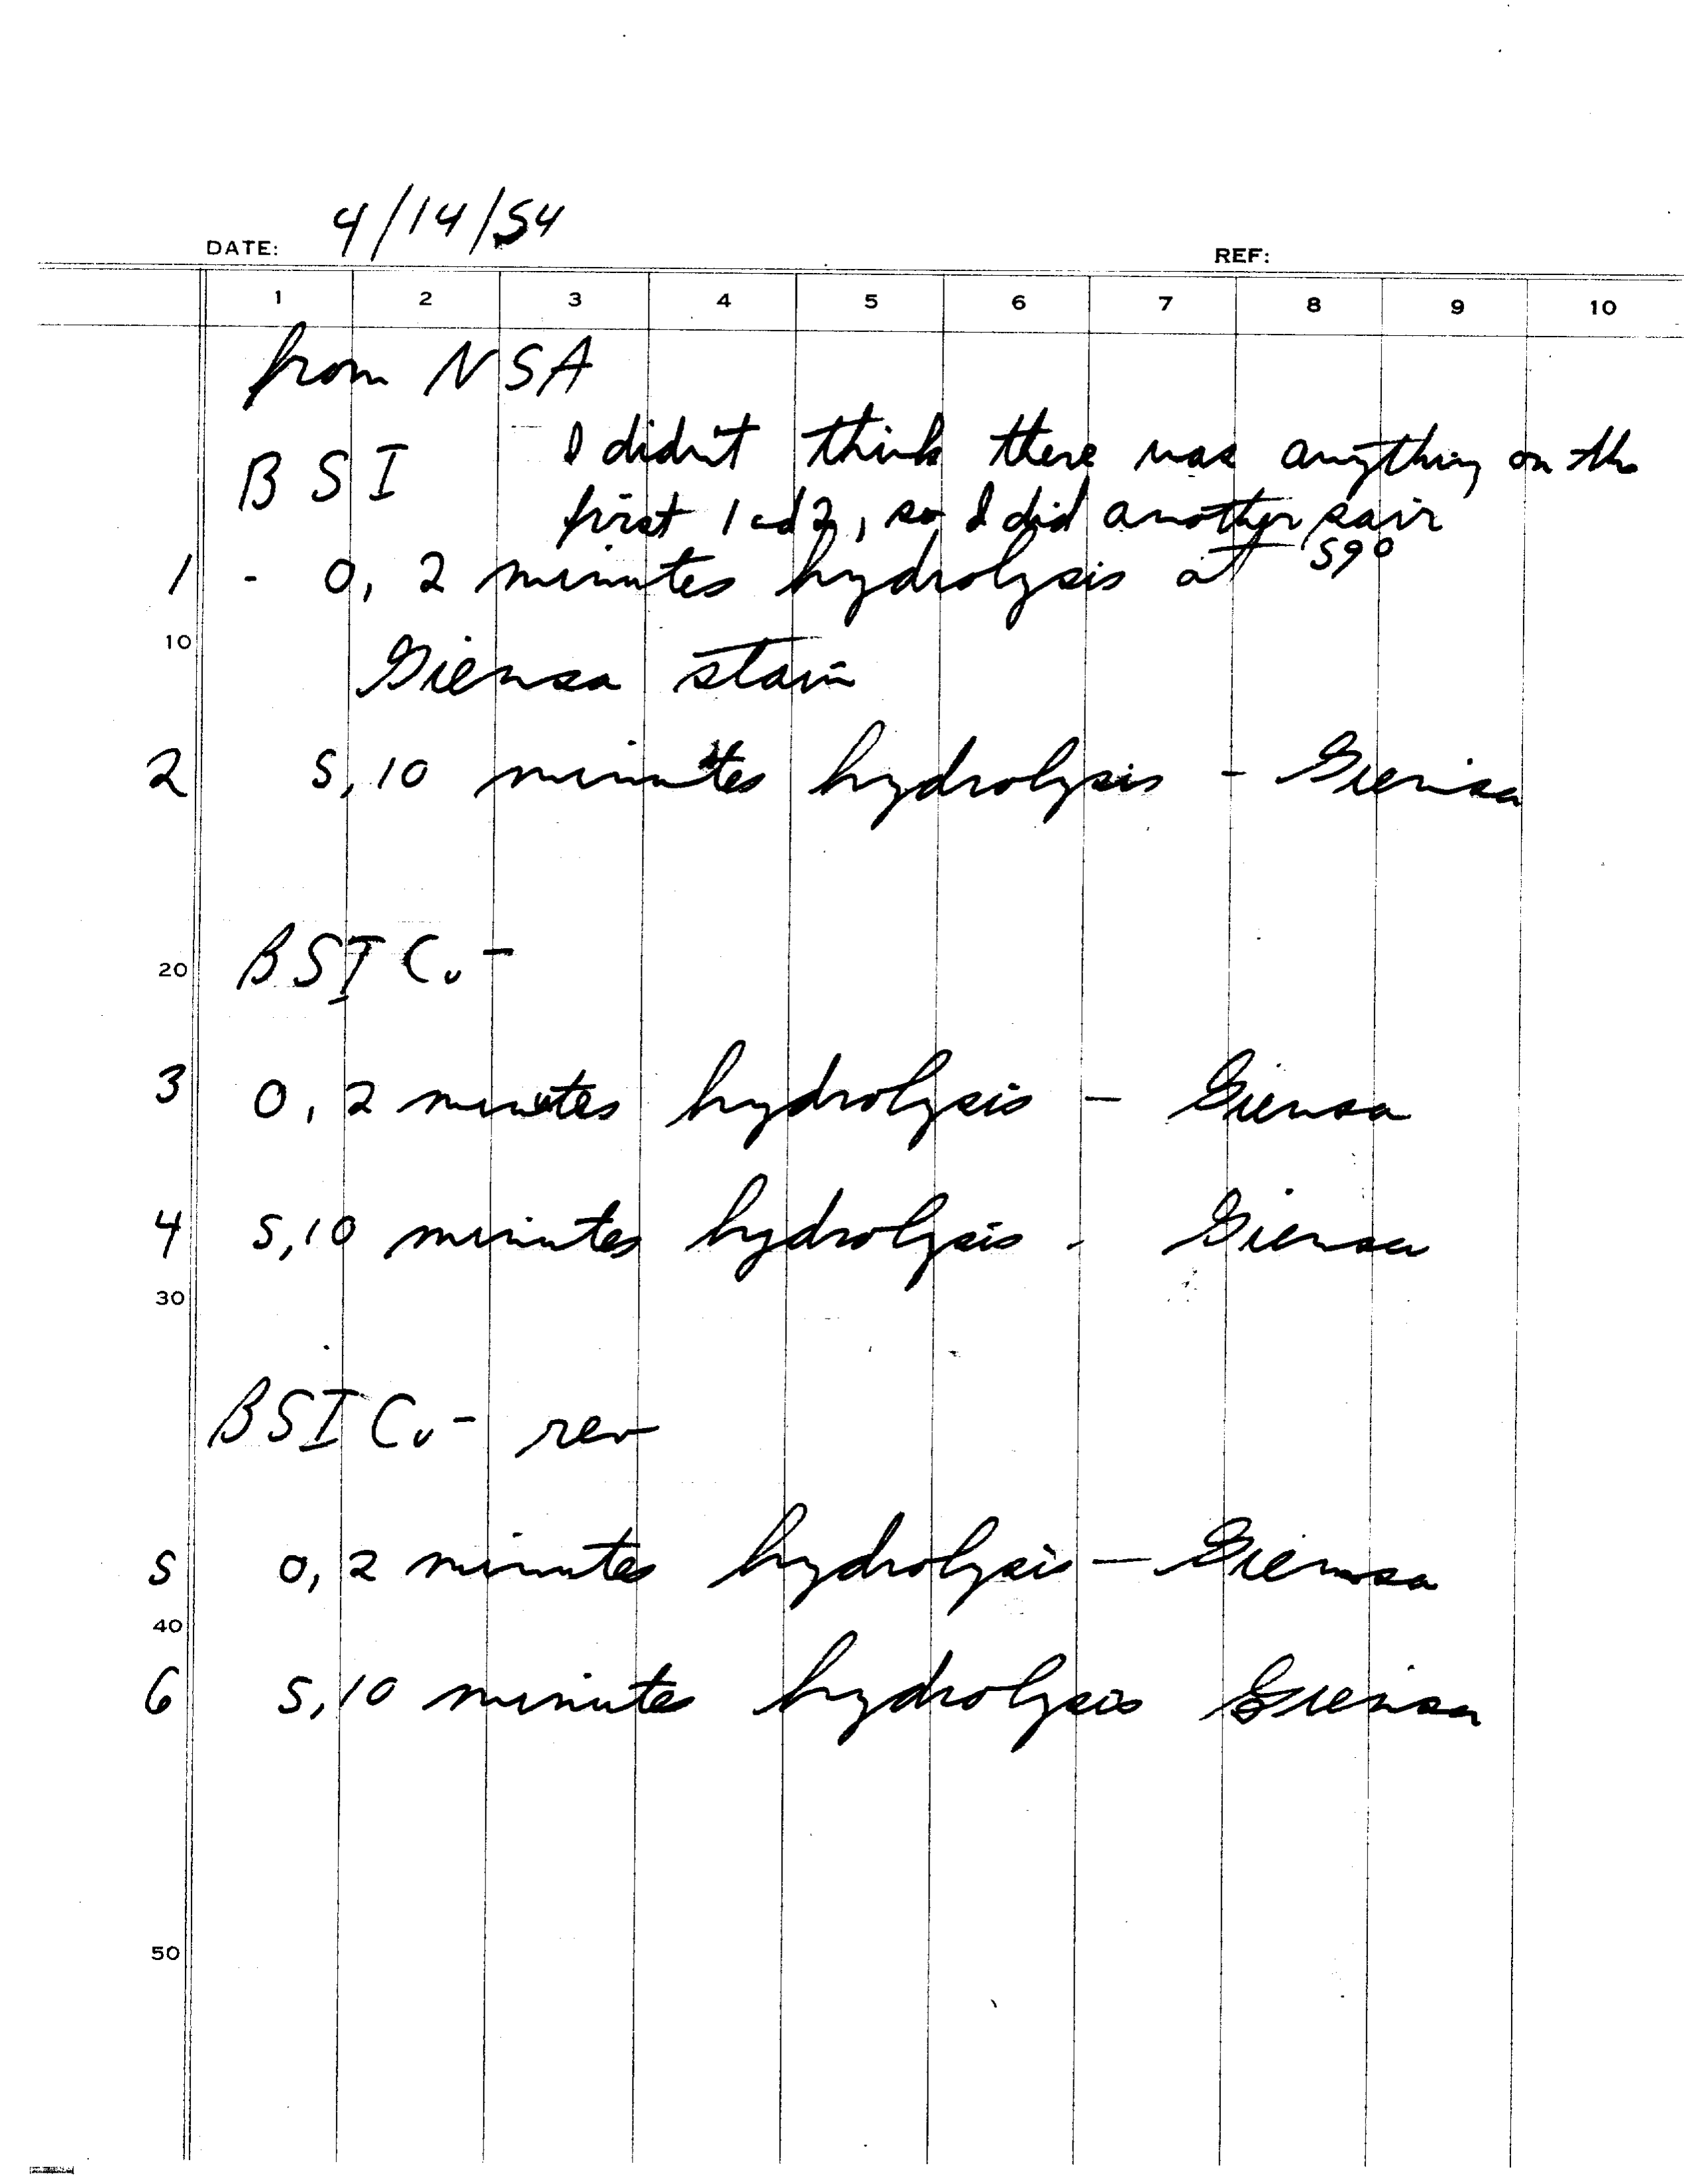 4/14/54
DATE: REF:
1 2 3 4 5 6 7 8 9 10
from NSA
BSI I didn't think there was anything on the
first 1 and 2, so I did another pair
1 - 0, 2 minutes hydrolysis at 59°
10
Giemsa stain
2 5, 10 minutes hydrolysis - Giemsa
20 BSI Cu -
3 0, 2 minutes hydrolysis - Giemsa
4 5, 10 minutes hydrolysis - Giemsa
30
BSI Cu - rev
5 0, 2 minutes hydrolysis — Giemsa
40
6 5, 10 minutes hydrolysis Giemsa
50